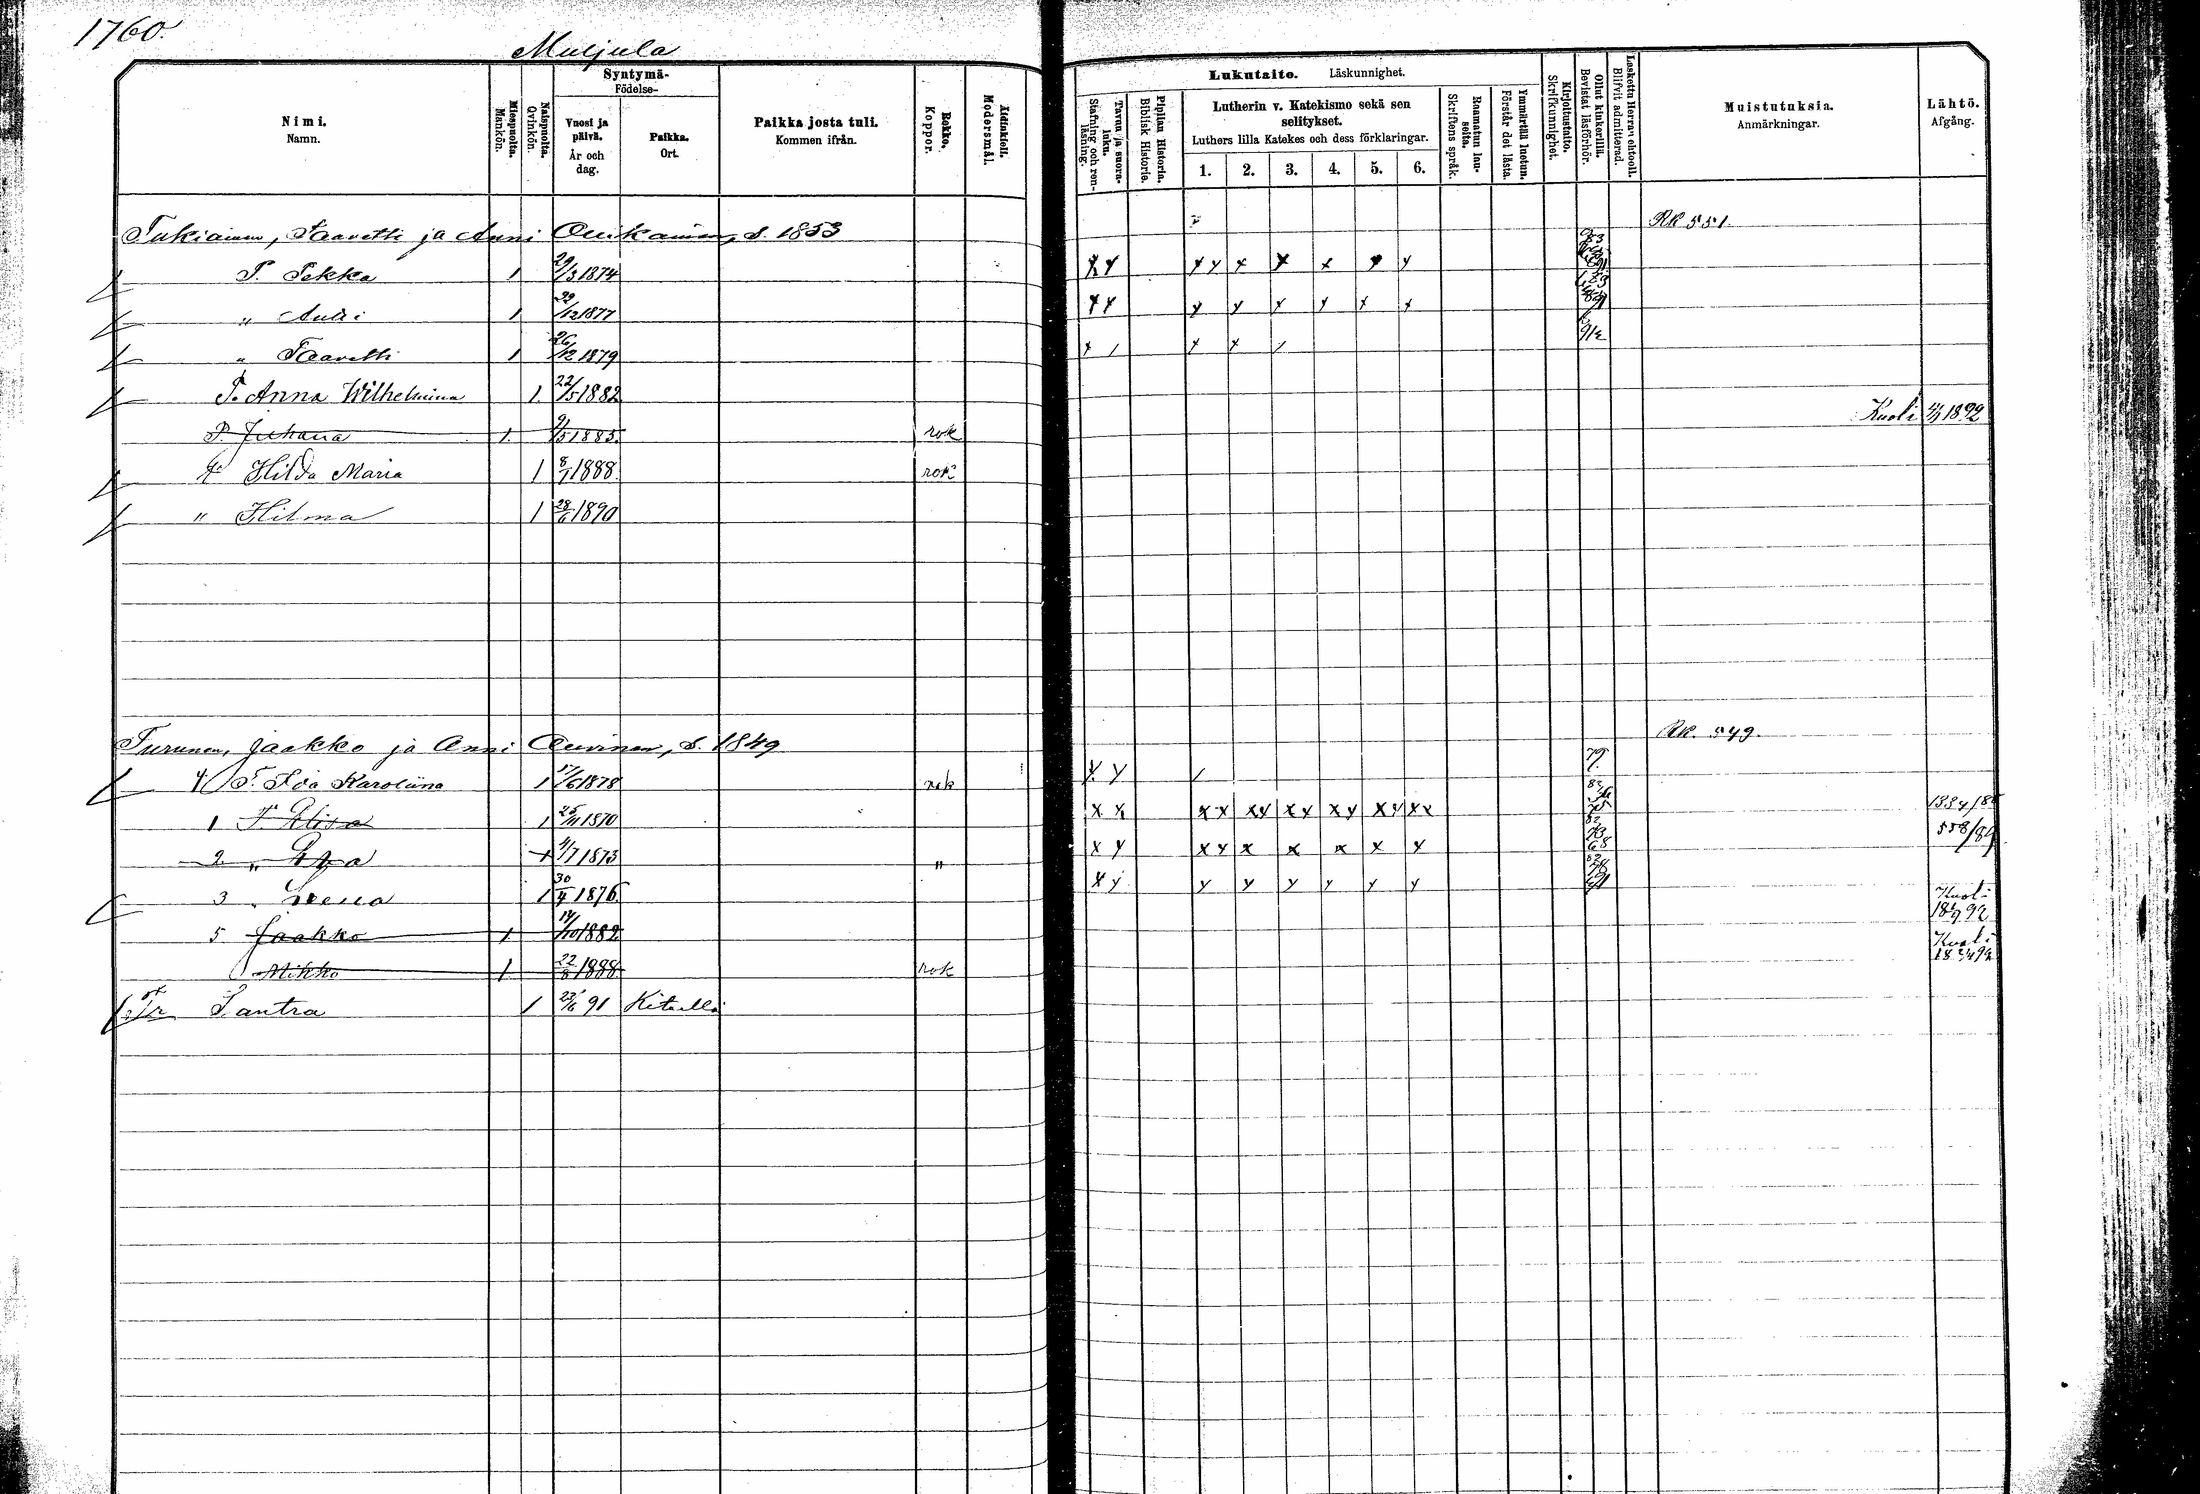 1760.
Muljula
Nimi.
Namn.
Miespuolta.
Mankön.
Naispuolta.
Qvinkön.
Syntymä-
Födelse-
Vuosi ja
päivä.
År och
dag.
Paikka.
Ort.
Paikka josta tuli.
Kommen ifrån.
Rokko.
Koppor.
Äidinkieli.
Modersmål.
Lukutaito. Läskunnighet.
Tavaa ja suora-
luku.
Stafning och ren-
läsning.
Piplian Historia.
Biblisk Historie.
Lutherin v. Katekismo sekä sen
selitykset.
Luthers lilla Katekes och dess förklaringar.
1. 2. 3. 4. 5. 6.
Raamatun lau-
seita.
Skriftens språk.
Ymmärtää luetun.
Förstår det lästa.
Kirjoitustaito.
Skrifkunnighet.
Ollut kinkerillä.
Bevistat läsförhör.
Laskettu Herran ehtooll.
Blifvit admitterad.
Muistutuksia.
Anmärkningar.
Lähtö.
Afgång.
Tukiainen, Taavetti ja Anni s. 1853 RK 551.
T. Pekka 1 29/3 1874
" Antti 1 /12 1877
" Taavetti 1 26/12 1879
T. Anna Wilhelmina 1. 22/5 1882
T. Juhana 1. 9/5 1885. rok Kuoli 1892
T. Hilda Maria 1 8/1 1888. rok
" Hilma 1 28/6 1890
Turunen, Jaakko ja Anni Auvinen, s. 1849 RK. 549.
4 T. Ida Karoliina 1 17/6 1878 rok
1 T. Elisa 1 25/11 1870
2 " Eva 1 4/7 1873 " 558/89
3 " Leena 1 30/4 1876.
5 Jaakko 1. 14/10 1882 Kuoli
Mikko 1 22/8 1888. rok Kuoli
Santra 1 23/6 91 Kiteellä